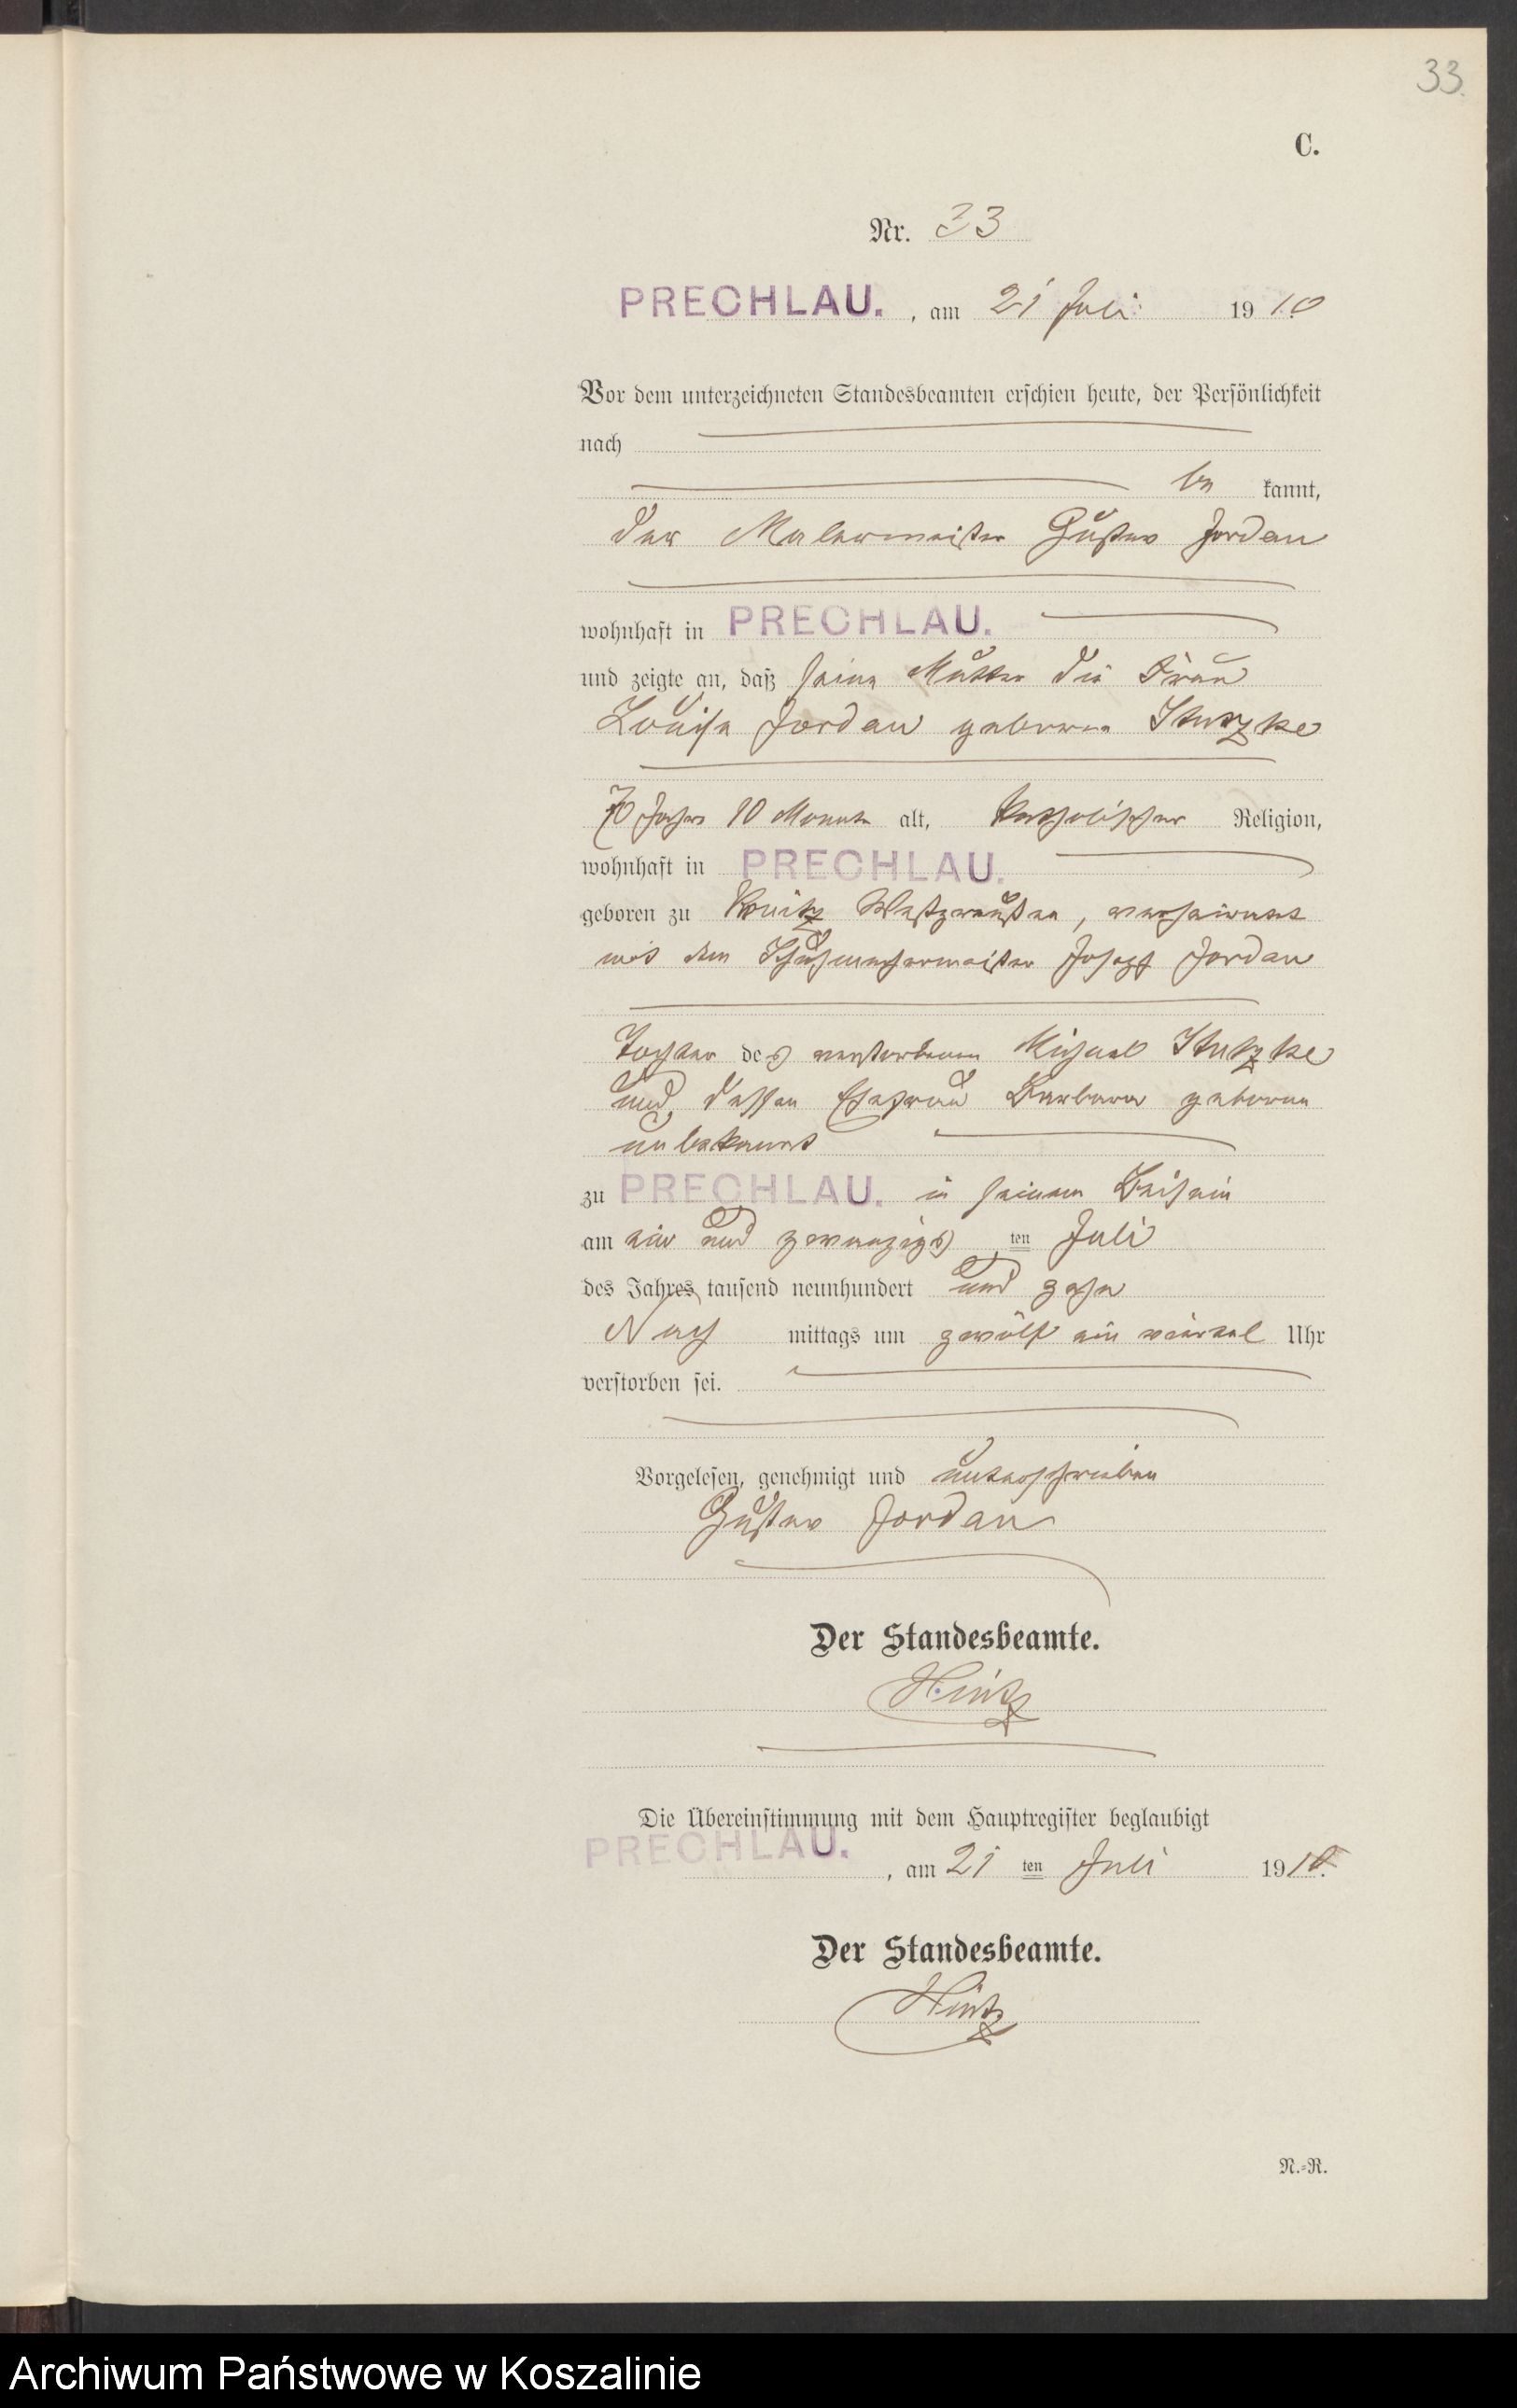 33.
C.
Nr. 33
PRECHLAU. , am 21 Juli 1910
Vor dem unterzeichneten Standesbeamten erschien heute, der Persönlichkeit
nach
be kannt,
der Malermeister Gustav Jordan
wohnhaft in PRECHLAU.
und zeigte an, daß seine Mutter die Frau
Louise Jordan geborene Stutzke
70 Jahre 10 Monate alt, katholischer Religion,
wohnhaft in PRECHLAU.
geboren zu Konitz Westpreußen, verheiratet
mit dem Schuhmachermeister Joseph Jordan
Tochter des verstorbenen Michael Stutzke
und dessen Ehefrau Barbara geborene
unbekannt
zu PRECHLAU. in seinem Beisein
am ein und zwanzigs ten Juli
des Jahres tausend neunhundert und zehn
Nach mittags um zwölf ein viertel Uhr
verstorben sei.
Vorgelesen, genehmigt und unterschrieben
Gustav Jordan
Der Standesbeamte.
Hintz
Die Übereinstimmung mit dem Hauptregister beglaubigt
PRECHLAU. , am 21 ten Juli 1910.
Der Standesbeamte.
Hintz
N.-R.
Archiwum Państwowe w Koszalinie